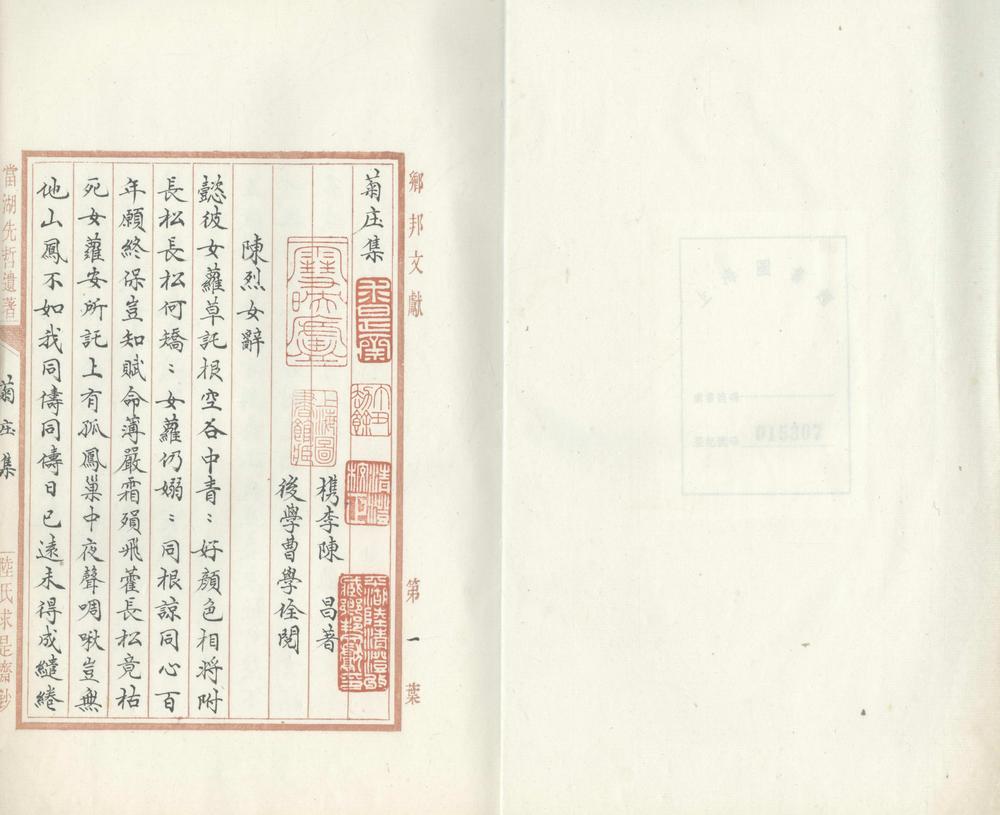 鄉邦文獻
第一葉
菊庄集
檇李陳昌著
後學曹學佺閱
陳烈女辭
懿彼女蘿草託根空谷中青〻好顔色相將附
長松長松何矯〻女蘿仍嫋〻同根諒同心百
年願終保豈知賦命薄嚴霜殞飛藿長松竟枯
死女蘿安所託上有孤鳳巢中夜聲啁啾豈無
他山鳳不如我同儔同儔日已遠未得成繾綣
當湖先哲遺著
菊庄集
陸氏求是齋鈔
上海圖書館藏
015307